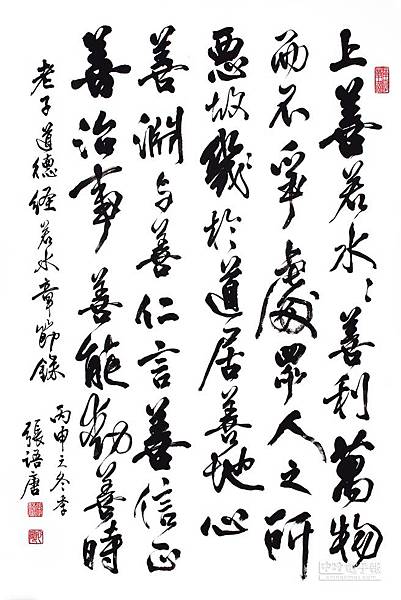 上善若水〻善利萬物
而不爭處眾人之所
惡故幾於道居善地心
善淵与善仁言善信正
善治事善能動善時
老子道德経若水章節錄
丙申之冬季
張語唐